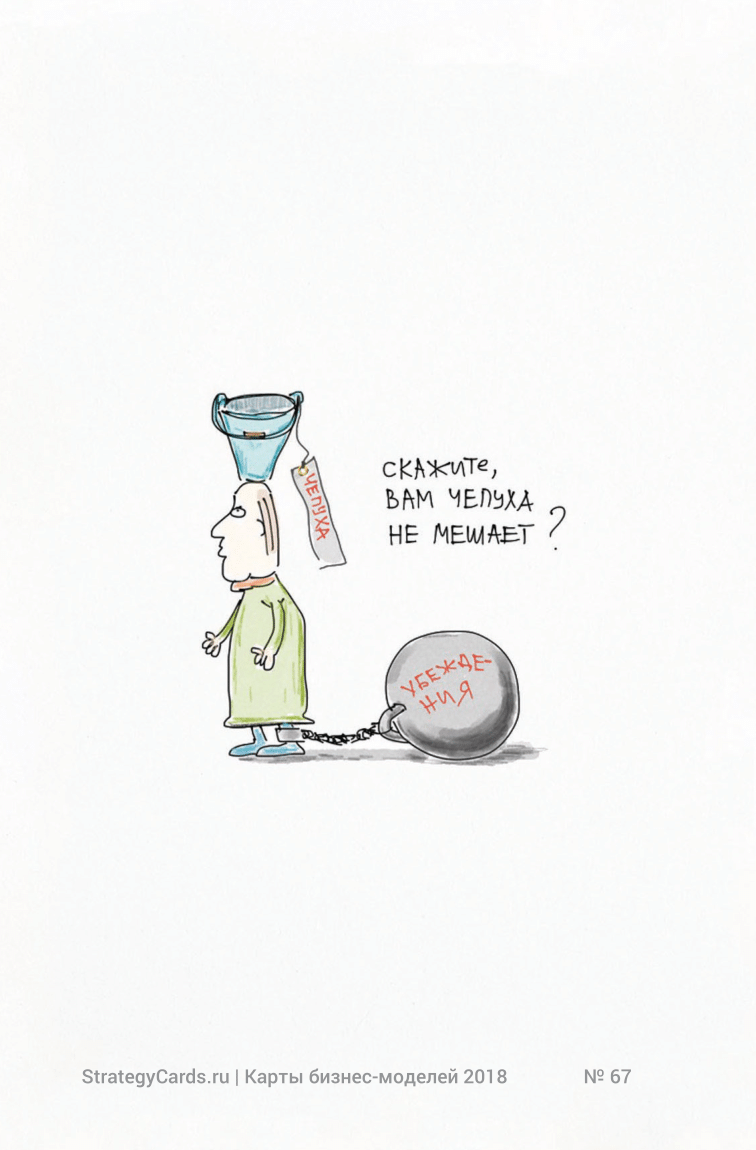 ЧЕПУХА
СКАЖИТЕ,
ВАМ ЧЕПУХА
НЕ МЕШАЕТ?
УБЕЖДЕ-
НИЯ
StrategyCards.ru | Карты бизнес-моделей 2018 № 67